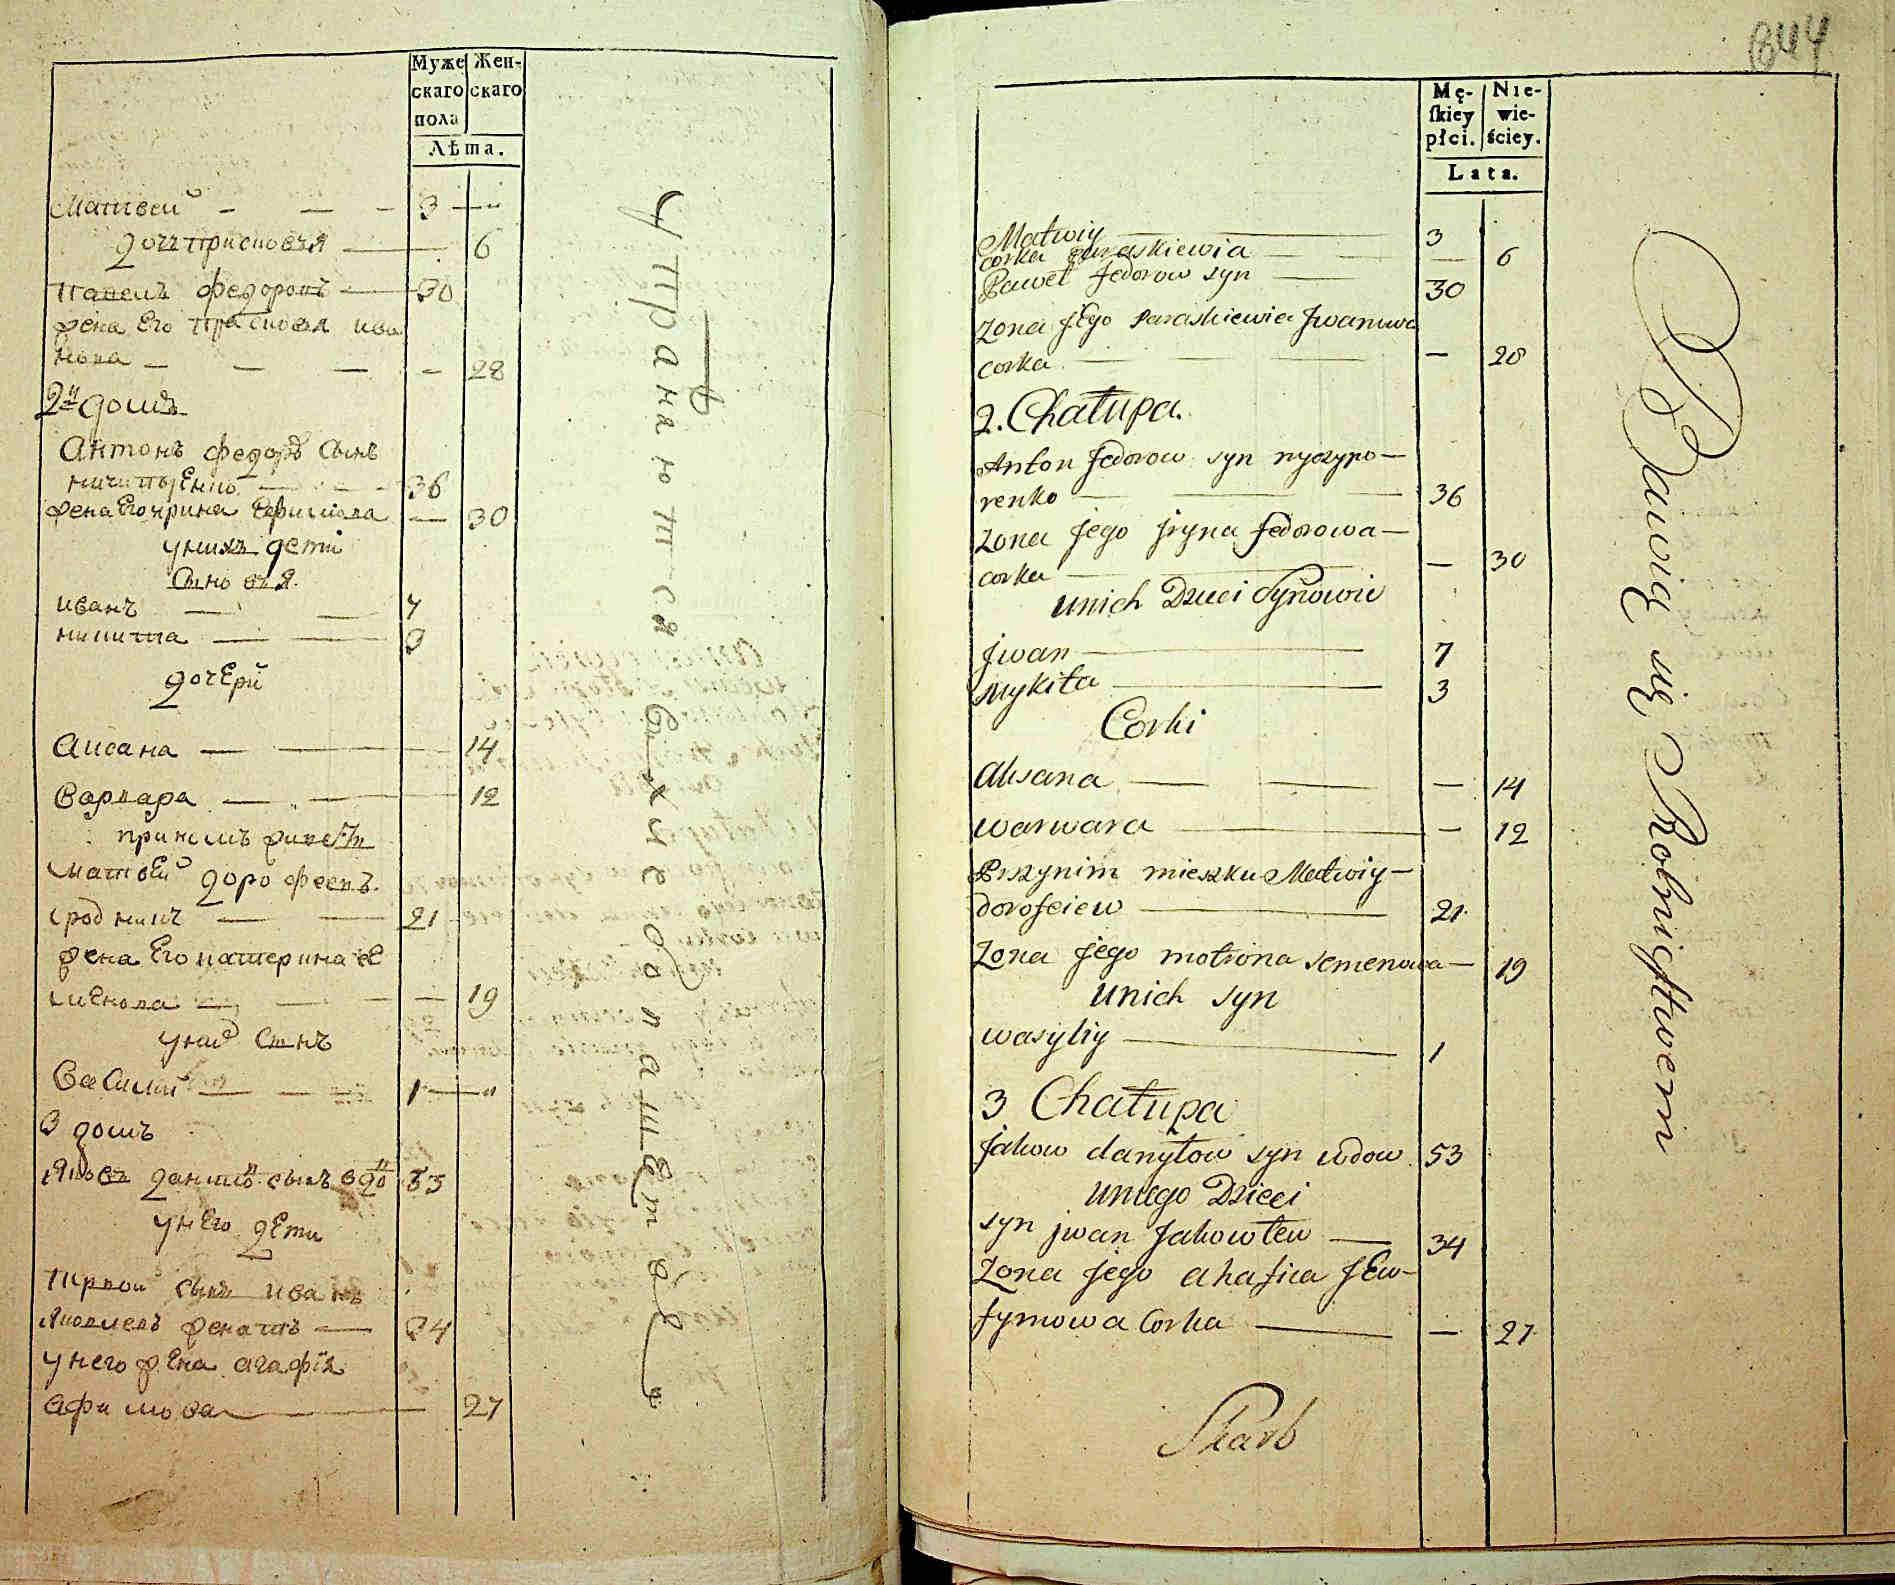 Муже
скаго
пола
Жен-
скаго
Лѣта.
Матвей 3
дочь присковья 6
павелъ федоровъ 30
жена Его прасковья ива
нова 28
2й домъ
Антонъ федоровъ сынъ
ничипъренко 36
жена Его ирина Ефимова 30
унихъ дети
Сыновья
иванъ 7
никита 3
дочери
аксана 14
варвара 12
принемъ
матвей дорофеевъ
21
жена Его катерина се
менова 19
уних Сынъ
Василий 1
3 домъ
Яковъ данил: сынъ вдо 53
унего дети
первой сынъ иванъ
Яковлевъ женатъ 34
унего жена агафия
афимова 27
упражняются въ хлебопашестве
844
Mę-
ſkiey
płci.
Nie-
wie-
ściey.
Lata.
Matwiy 3
corka paraskiewia 6
Paweł fedorow syn 30
zona jEgo Paraskiewia Jwanowa
corka 28
2. Chałupa.
Anton fedorow syn nyczypo-
renko 36
zona jego jryna fedorowa-
corka 30
unich Dzieci Synowie
jwan 7
Mykita 3
Corki
aksana 14
warwara 12
Przynim mieszku Matwiy-
dorofeiew 21
zona jego motrona semenowa- 19
unich syn
wasyliy 1
3 Chałupa
jakow danyłow syn wdow 53
uniego Dzieci
syn jwan Jakowlew 34
zona jego ahafiia jEw-
fymowa Corka 27
Skarb
Bawią się Robnictwem